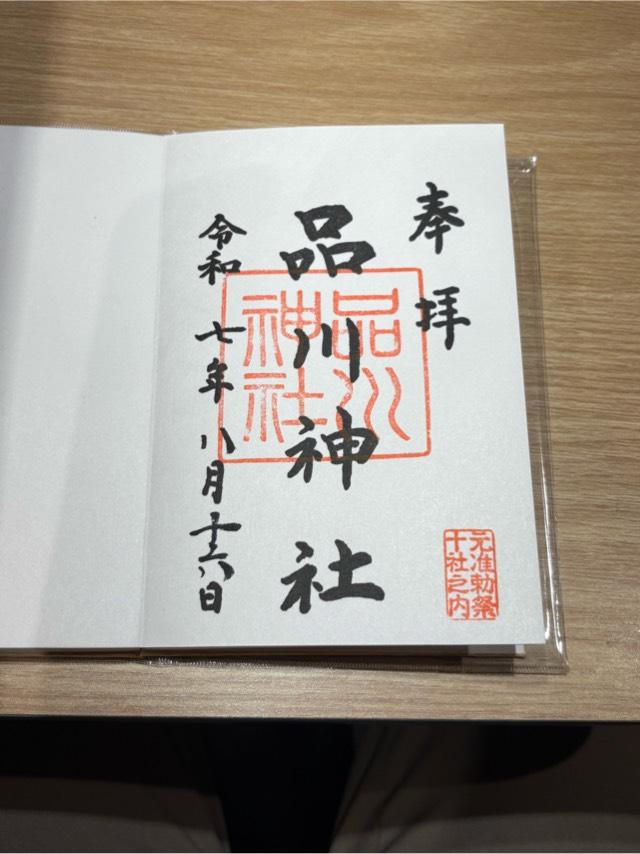 奉拝
品川神社
品川神社
令和七年八月十六日
元准勅祭
十社之内